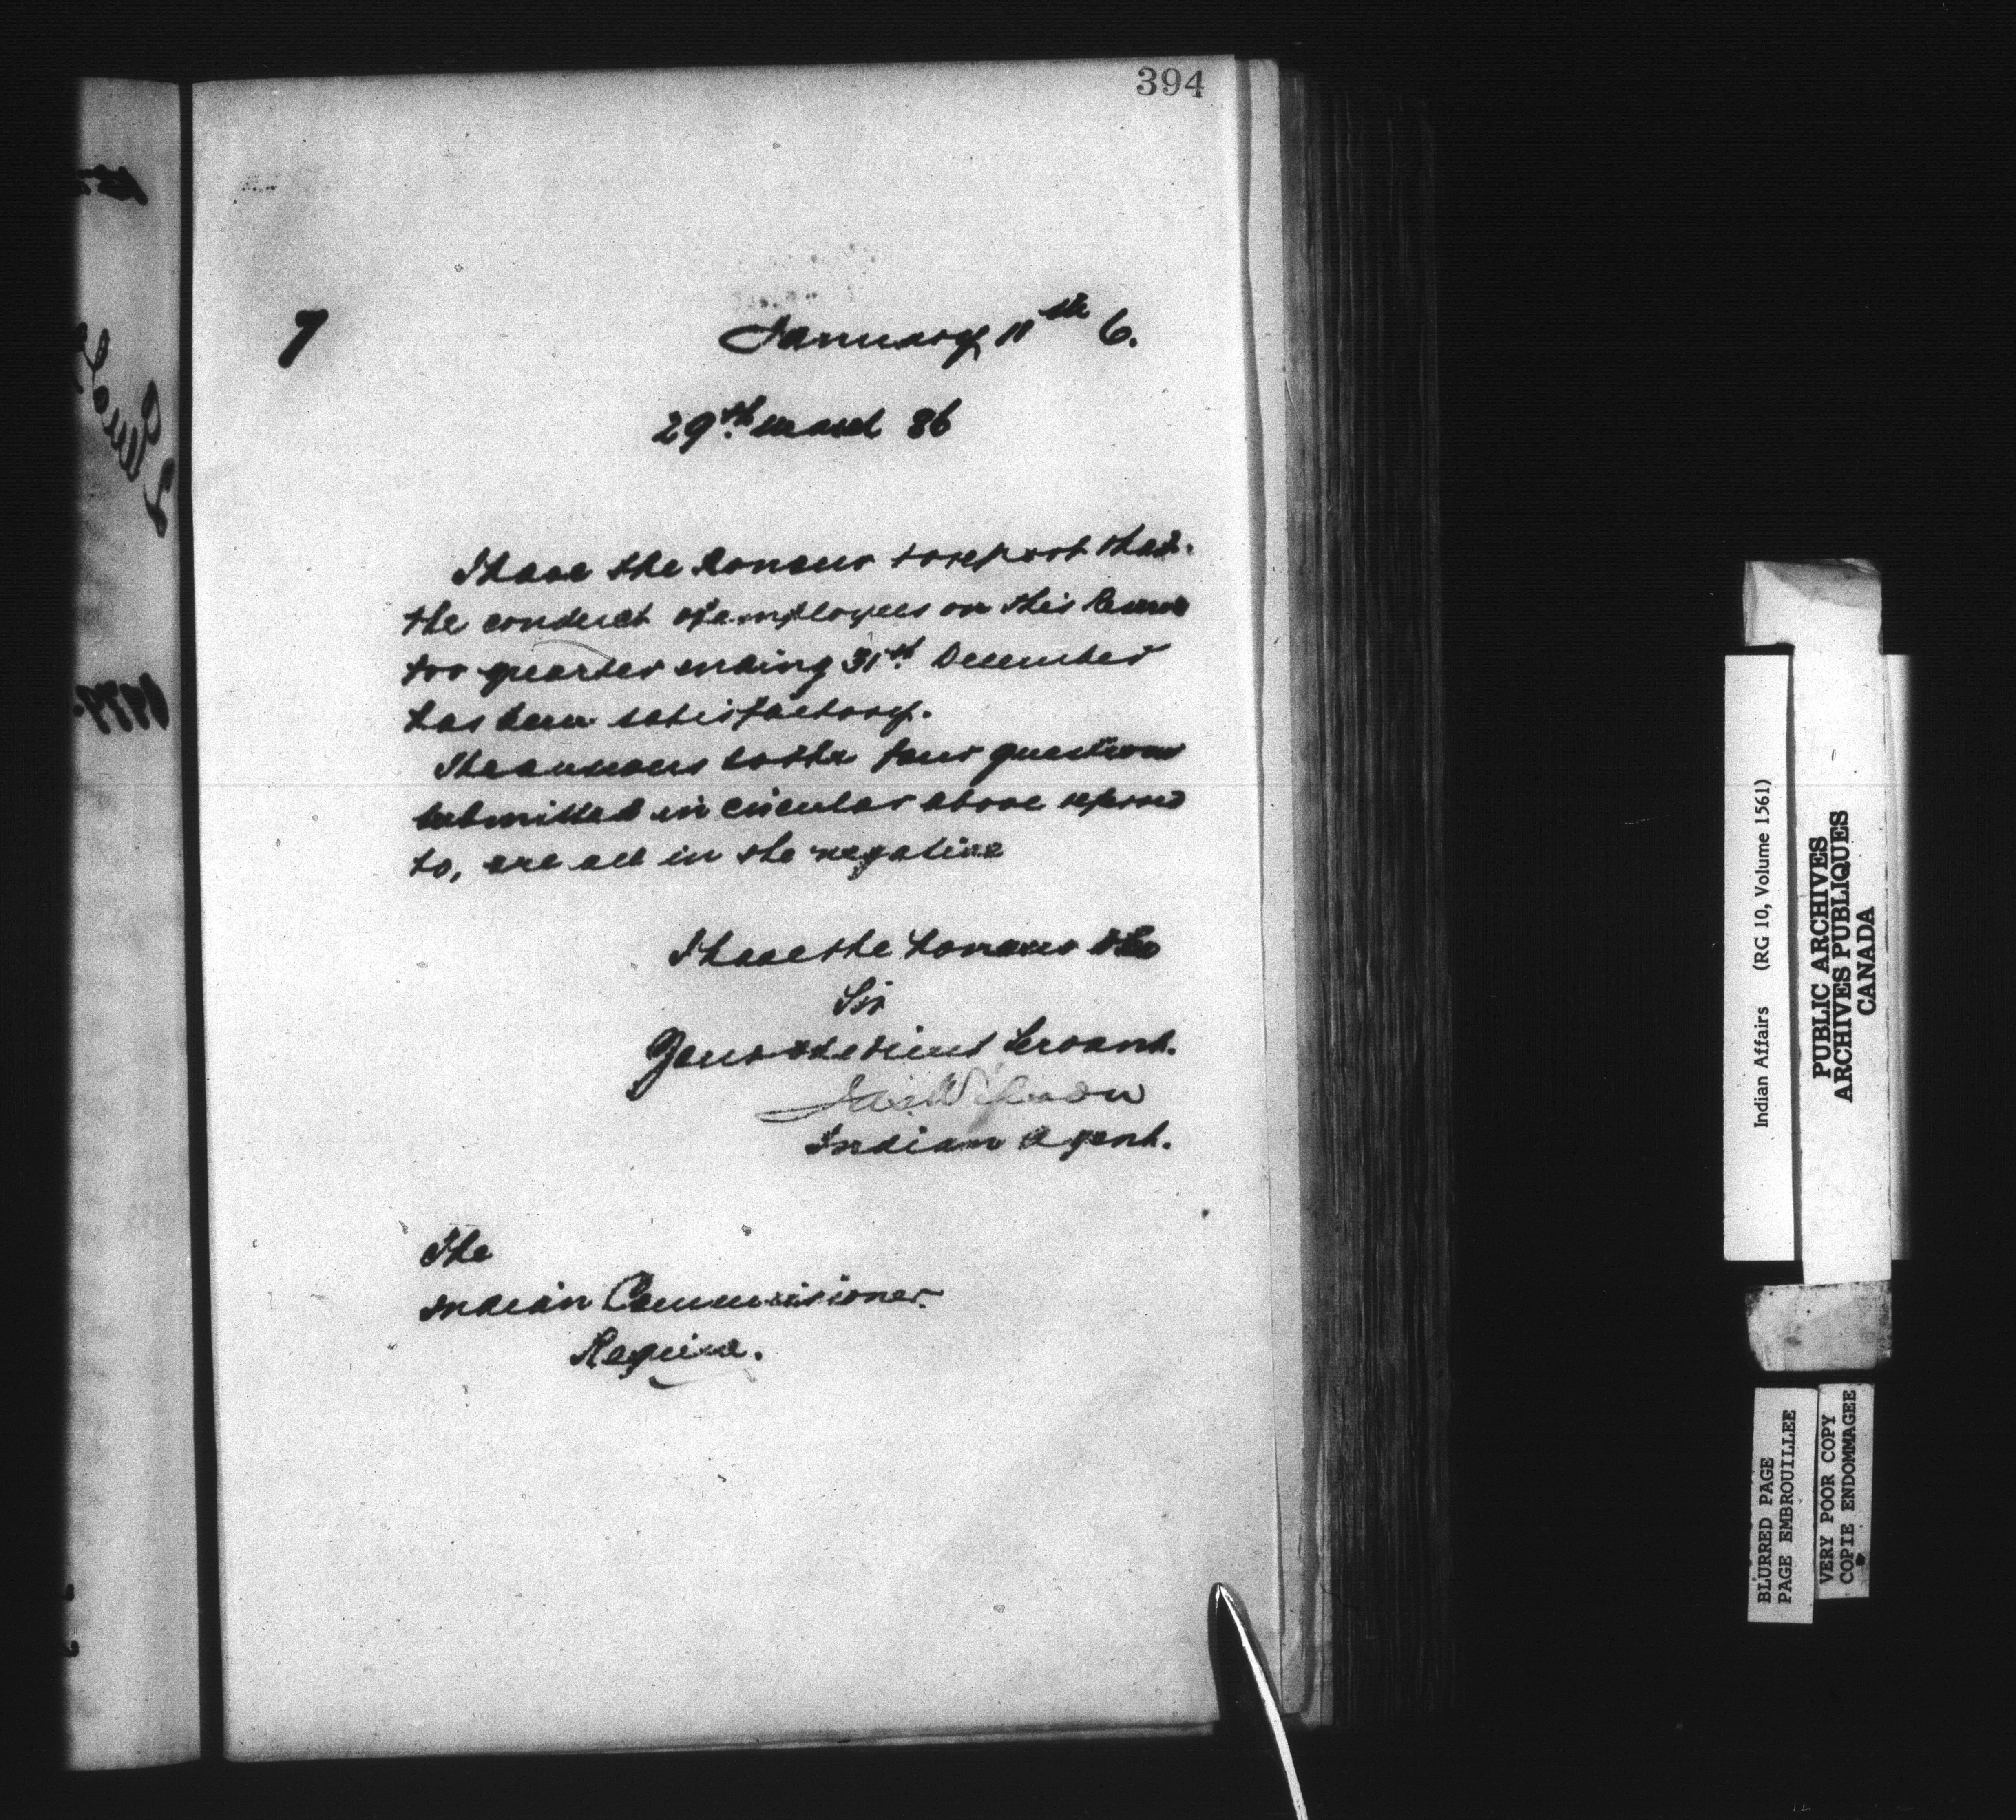 394
7
January 11th 6.
29th March 86
I have the honour to report that
the conduct of employees on this Reserve
for quarter ending 31st December
has been satisfactory.
The answers to the four questions
submitted in circular above referred
to, are all in the negative
I have the honour to be
Sir
Your obedient servant.
Jas Wilson
Indian Agent.
The
Indian Commissioner.
Regina.
Indian Affairs (RG 10, Volume 1561)
PUBLIC ARCHIVES
ARCHIVES PUBLIQUES
CANADA
BLURRED PAGE
PAGE EMBROUILLEE
VERY POOR COPY
COPIE ENDOMMAGEE